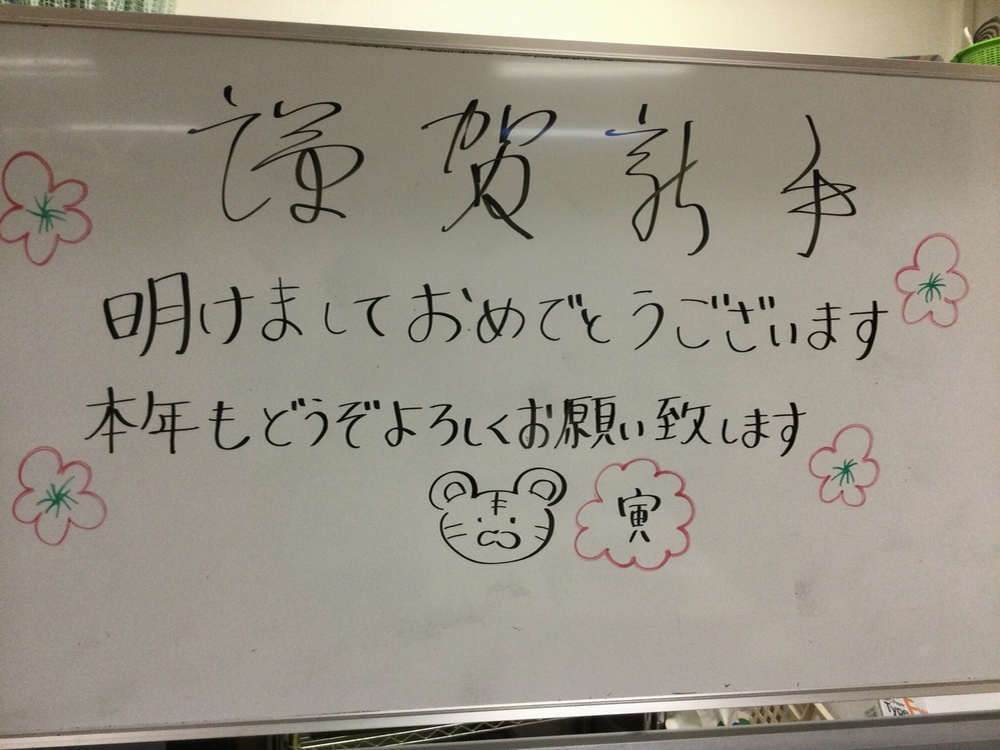 謹賀新年
明けましておめでとうございます
本年もどうぞよろしくお願い致します
寅
Type